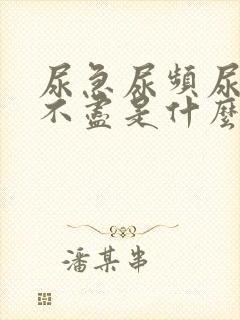 尿急尿頻尿
不盡是什麼
潘某串